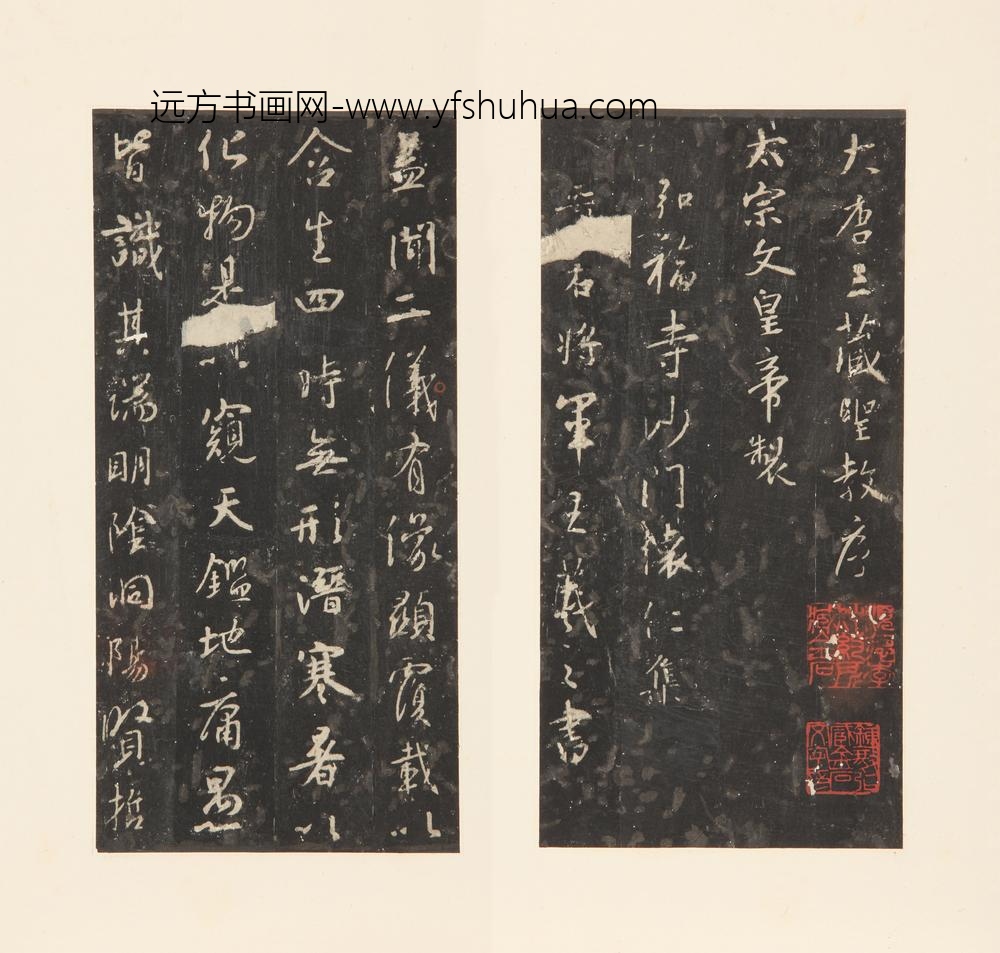 远方书画网-www.yfshuhua.com
大唐三藏聖教序
太宗文皇帝製
弘福寺沙門懷仁集
晉右將軍王羲之書
蓋聞二儀有像顯覆載以
含生四時無形潛寒暑以
化物是以窺天鑑地庸愚
皆識其端明陰洞陽賢哲